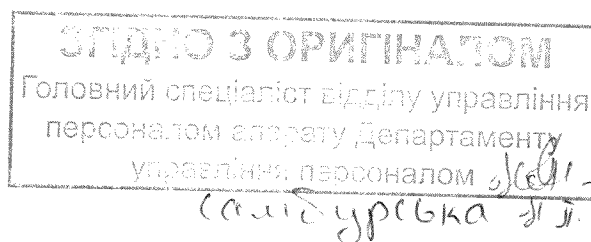 ЗГІДНО З ОРИГІНАЛОМ
Головний спеціаліст відділу управління
персоналом апарату Департаменту
управління персоналом